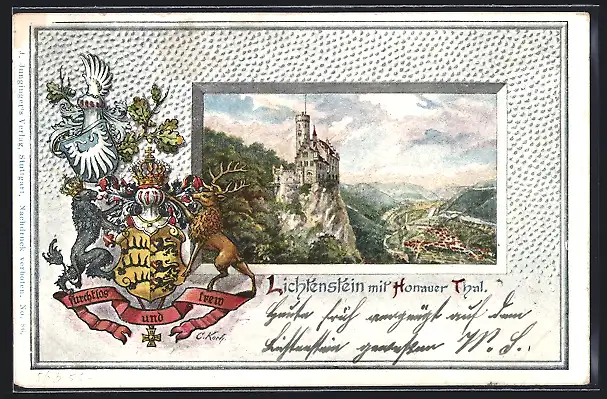 J. Junginger's Verlag, Stuttgart, Nachdruck verboten. No. 86.
furchtlos und trew
C. Koch.
Lichtenstein mit Honauer Thal.
Heute früh vergnügt auf dem
Lichtenstein gewesen M. S.